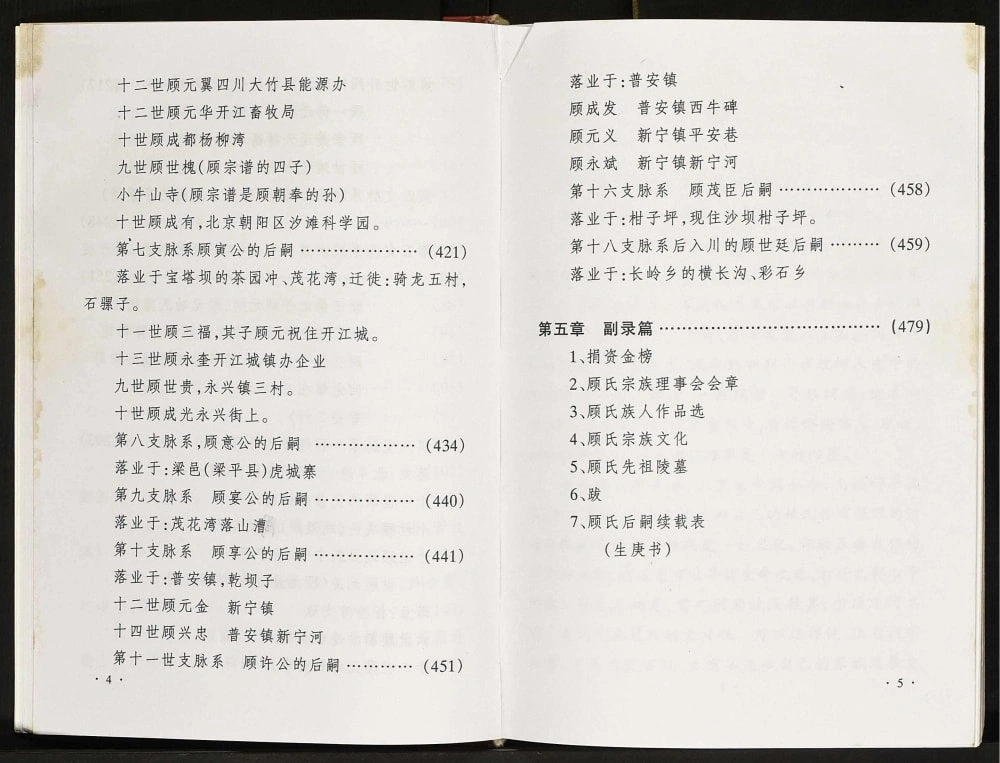 十二世顾元翼四川大竹县能源办
十二世顾元华开江畜牧局
十世顾成都杨柳湾
九世顾世槐(顾宗谱的四子)
小牛山寺(顾宗谱是顾朝奉的孙)
十世顾成有,北京朝阳区汐滩科学园。
第七支脉系顾寅公的后嗣 ……………… (421)
落业于宝塔坝的茶园冲、茂花湾,迁徙:骑龙五村,
石骡子。
十一世顾三福,其子顾元祝住开江城。
十三世顾永奎开江城镇办企业
九世顾世贵,永兴镇三村。
十世顾成光永兴街上。
第八支脉系,顾意公的后嗣 ……………… (434)
落业于:梁邑(梁平县)虎城寨
第九支脉系　顾宴公的后嗣 ……………… (440)
落业于:茂花湾落山漕
第十支脉系　顾享公的后嗣 ……………… (441)
落业于:普安镇,乾坝子
十二世顾元金　新宁镇
十四世顾兴忠　普安镇新宁河
第十一世支脉系　顾许公的后嗣 …………… (451)
· 4 ·
落业于:普安镇
顾成发　普安镇西牛碑
顾元义　新宁镇平安巷
顾永斌　新宁镇新宁河
第十六支脉系　顾茂臣后嗣 ……………… (458)
落业于:柑子坪,现住沙坝柑子坪。
第十八支脉系后入川的顾世廷后嗣 ……… (459)
落业于:长岭乡的横长沟、彩石乡
第五章　副录篇 ………………………………… (479)
1、捐资金榜
2、顾氏宗族理事会会章
3、顾氏族人作品选
4、顾氏宗族文化
5、顾氏先祖陵墓
6、跋
7、顾氏后嗣续载表
(生庚书)
· 5 ·